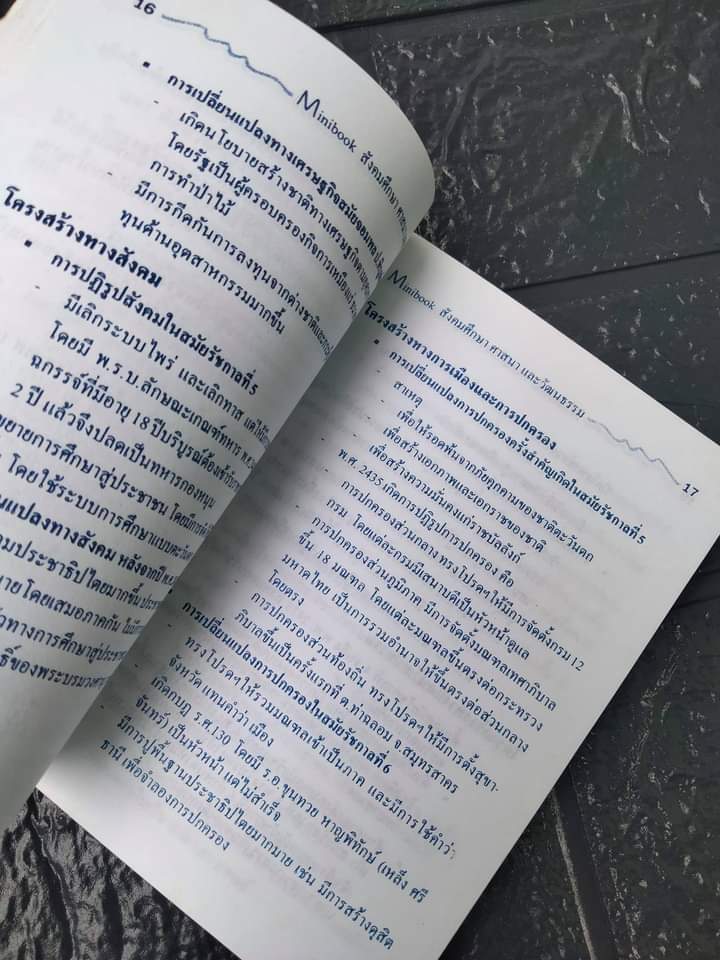 16
Minibook สังคมศึกษา ศาสนา
▪ การเปลี่ยนแปลงทางเศรษฐกิจสมัยจอมพล
- เกิดนโยบายสร้างชาติทางเศรษฐกิจ
โดยรัฐเป็นผู้ครอบครองกิจการเหมืองแร่
การทำป่าไม้
- มีการกีดกันการลงทุนจากต่างชาติและ
ทุนด้านอุตสาหกรรมมากขึ้น
โครงสร้างทางสังคม
▪ การปฏิรูปสังคมในสมัยรัชกาลที่5
มีเลิกระบบไพร่ และเลิกทาส
โดยมี พ.ร.บ.ลักษณะเกณฑ์ทหาร
ฉกรรจ์ที่มีอายุ 18 ปีบริบูรณ์ต้องเข้ารับ
2 ปี แล้วจึงปลดเป็นทหารกองหนุน
ขยายการศึกษาสู่ประชาชน
โดยใช้ระบบการศึกษาแบบตะวันตก
แปลงทางสังคม หลังจากปี
ประชาธิปไตยมากขึ้น
โดยเสมอภาคกัน
ทางการศึกษาสู่
ของพระบรมวงศ์
Minibook สังคมศึกษา ศาสนา และวัฒนธรรม
17
โครงสร้างทางการเมืองและการปกครอง
▪ การเปลี่ยนแปลงการปกครองครั้งสำคัญเกิดในสมัยรัชกาลที่5
- สาเหตุ
- เพื่อให้รอดพ้นจากภัยคุกคามของชาติตะวันตก
- เพื่อสร้างเอกภาพและเอกราชของชาติ
- เพื่อสร้างความมั่นคงแก่ราชบัลลังก์
พ.ศ. 2435 เกิดการปฏิรูปการปกครอง คือ
- การปกครองส่วนกลาง ทรงโปรดฯให้มีการจัดตั้งกรม 12
กรม โดยแต่ละกรมมีเสนาบดีเป็นหัวหน้าดูแล
- การปกครองส่วนภูมิภาค มีการจัดตั้งมณฑลเทศาภิบาล
ขึ้น 18 มณฑล โดยแต่ละมณฑลขึ้นตรงต่อกระทรวง
มหาดไทย เป็นการรวมอำนาจให้ขึ้นตรงต่อส่วนกลาง
โดยตรง
- การปกครองส่วนท้องถิ่น ทรงโปรดฯให้มีการตั้งสุขา-
ภิบาลขึ้นเป็นครั้งแรกที่ ต.ท่าฉลอม จ.สมุทรสาคร
การเปลี่ยนแปลงการปกครองในสมัยรัชกาลที่6
- ทรงโปรดฯให้รวมมณฑลเข้าเป็นภาค และมีการใช้คำว่า
จังหวัด แทนคำว่า เมือง
- เกิดกบฏ ร.ศ.130 โดยมี ร.อ.ขุนทวย หาญพิทักษ์ (เหล็ง ศรี
จันทร์) เป็นหัวหน้า แต่ไม่สำเร็จ
- มีการปูพื้นฐานประชาธิปไตยมากมาย เช่น มีการสร้างดุสิต
ธานี เพื่อจำลองการปกครอง